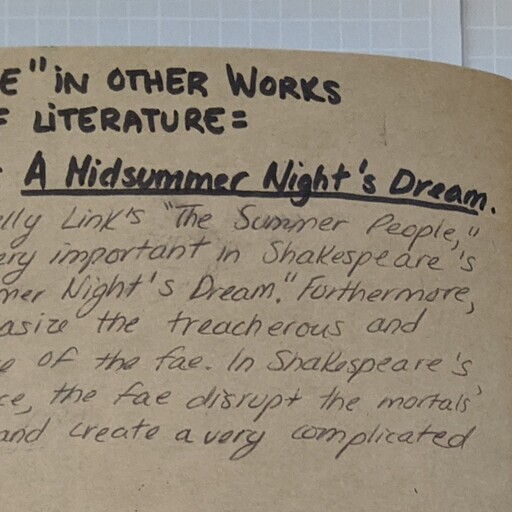 E" IN OTHER WORKS
F LITERATURE=
A Midsummer Night's Dream.
elly Link's "The Summer People,"
ery important in Shakespeare's
mer Night's Dream." Furthermore,
asize the treacherous and
e of the fae. In Shakespeare's
ce, the fae disrupt the mortals'
and create a very complicated